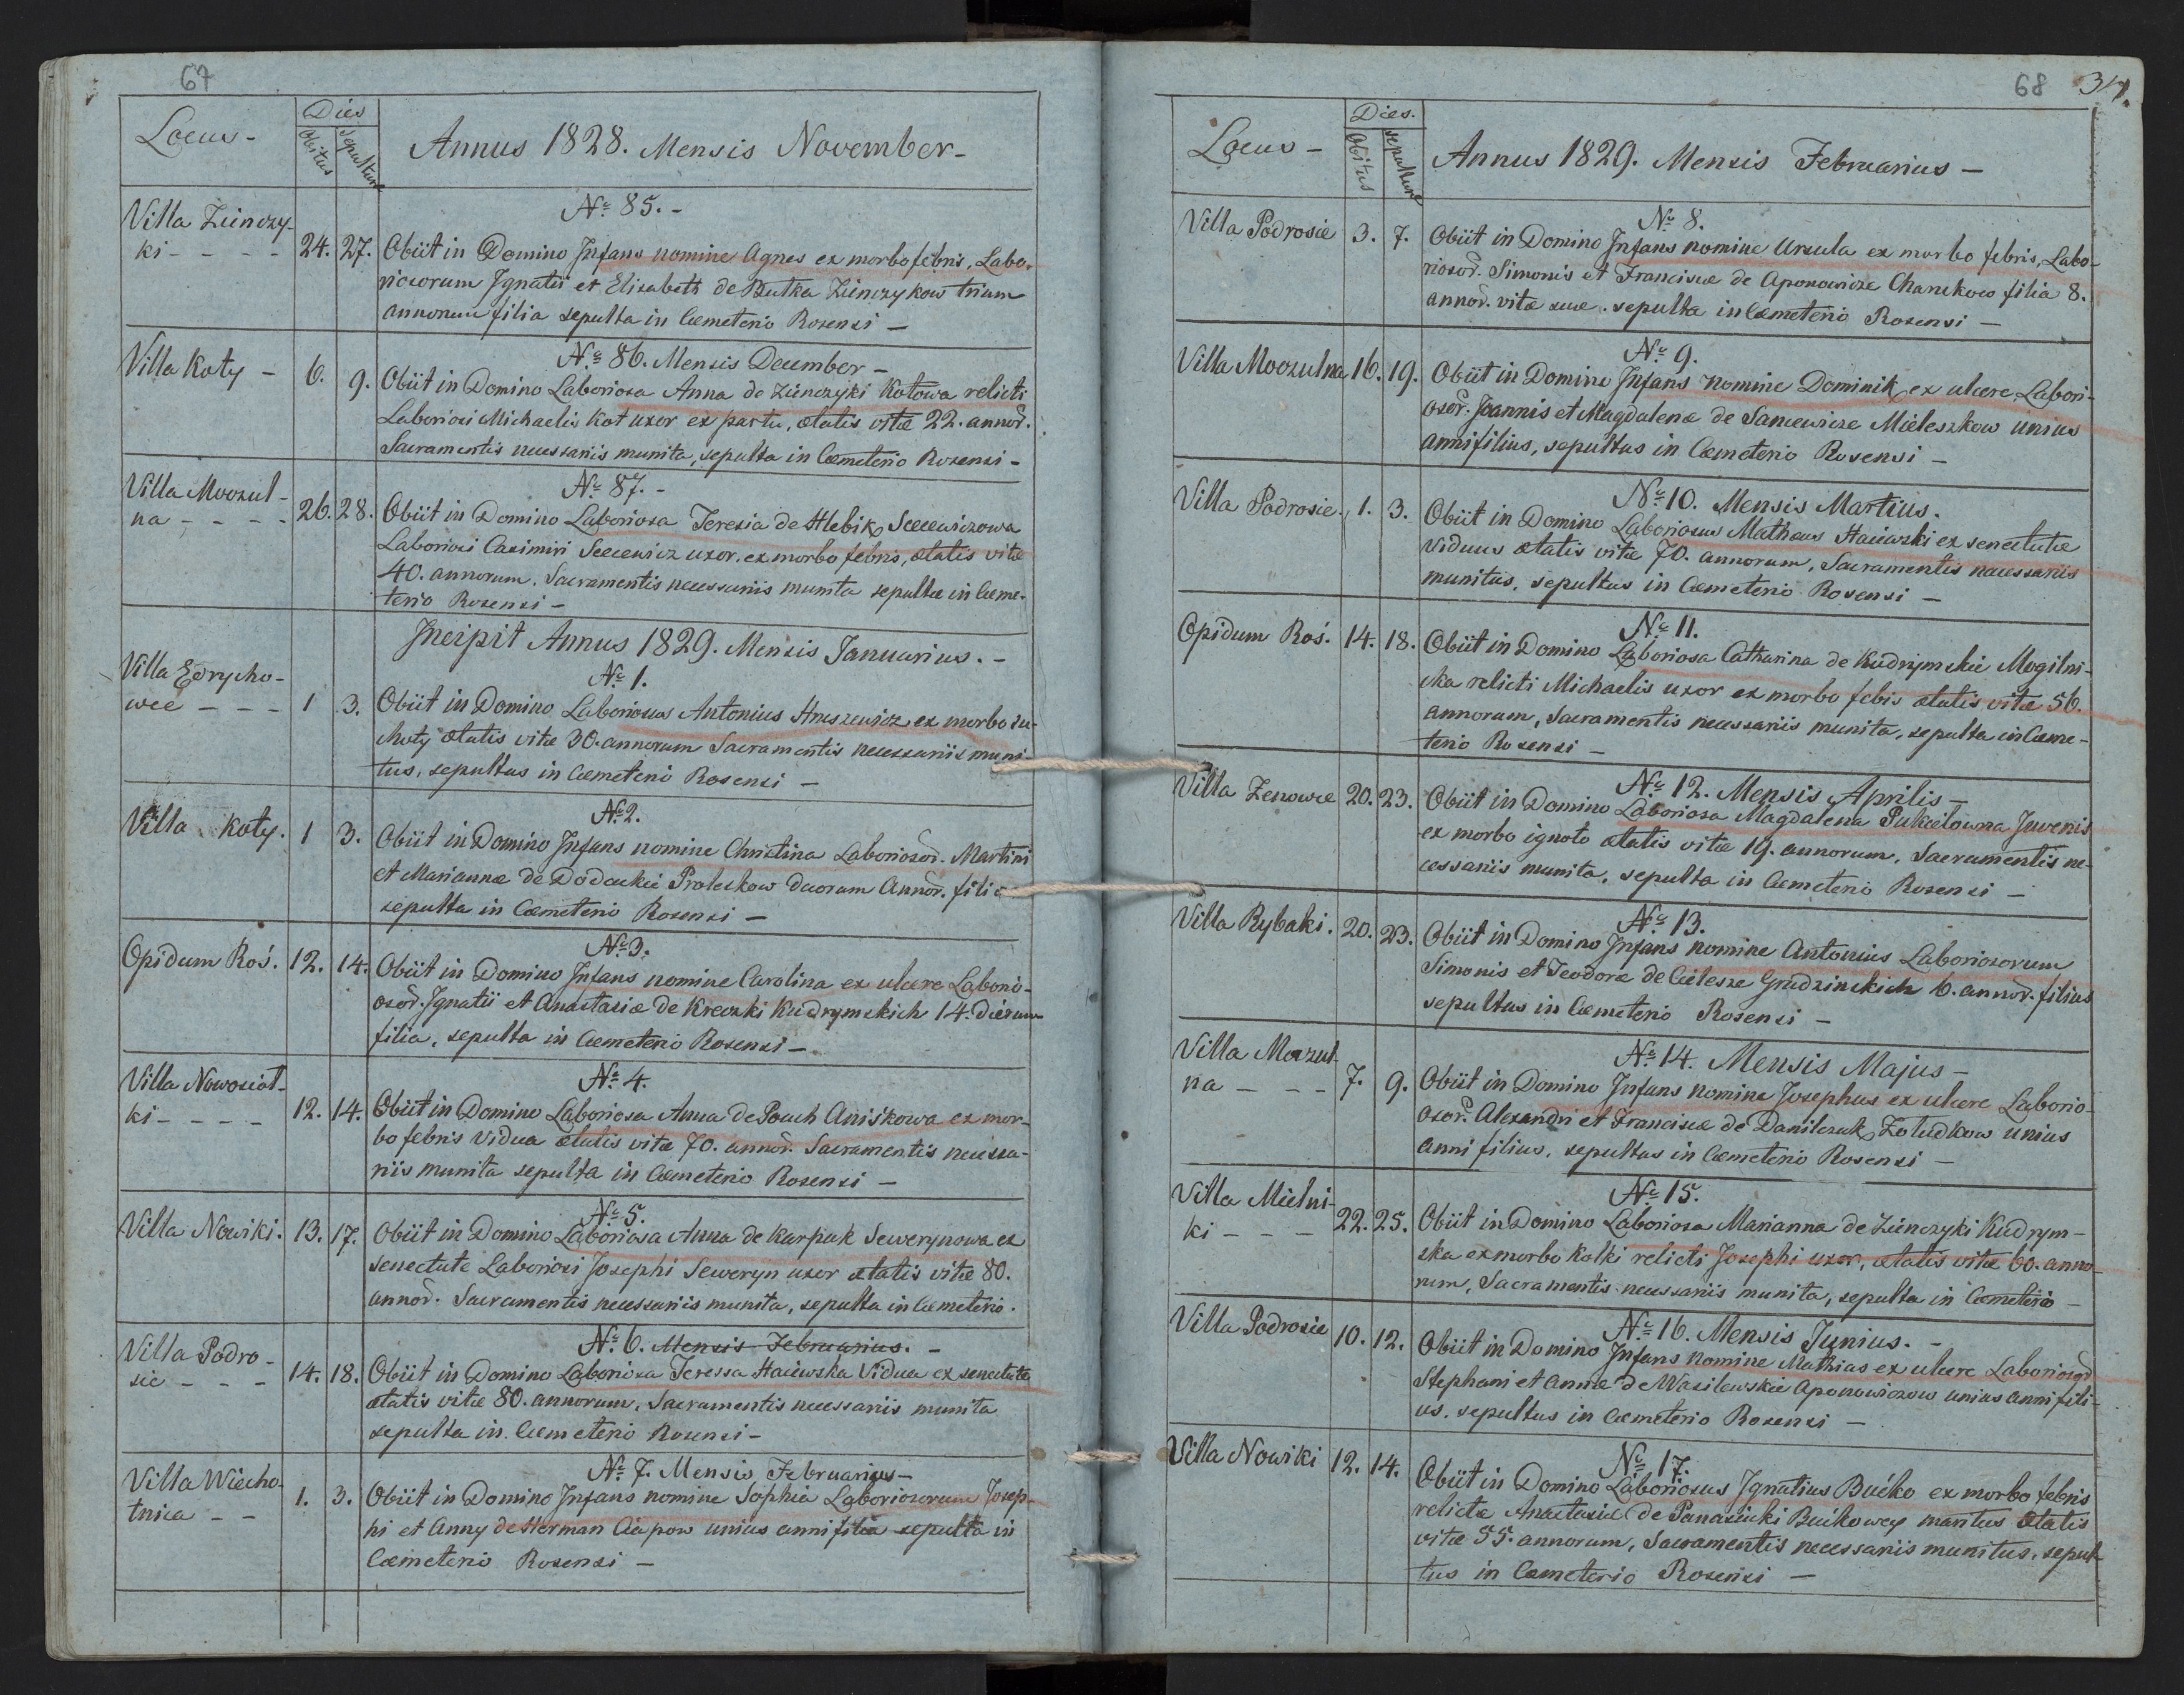 67
Locus -
Dies
Obitus
Sepulturæ
Annus 1828. Mensis November -
Villa Zienczy-
ki - - - -
24. 27.
No 85. -
Obiit in Domino Infans nomine Agnes ex morbo febris, Labo-
riosorum Ignatii et Elisabeth de Butka Zienczykow trium
annorum filia sepulta in Cæmeterio Rosensi -
Villa Koty -
6. 9.
No 86. Mensis December -
Obiit in Domino Laboriosa Anna de Zienczyki Kotowa relicti
Laboriosi Michaelis Kot uxor ex partu, ætatis vitæ 22. annor.
Sacramentis necessariis munita, sepulta in Cæmeterio Rosensi -
Villa Moczul-
na - - - -
26. 28.
No 87. -
Obiit in Domino Laboriosa Teresia de Hlebik
Laboriosi Casimiri uxor, ex morbo febris, ætatis vitæ
40. annorum. Sacramentis necessariis munita sepulta in Cæme-
terio Rosensi -
Incipit Annus 1829. Mensis Januarius. -
Villa Edrycho-
wce - - -
1 3.
No 1.
Obiit in Domino Laboriosus Antonius Hruszewicz ex morbo su-
choty ætatis vitæ 30. annorum Sacramentis necessariis muni-
tus, sepultus in Cæmeterio Rosensi -
Villa Koty.
1 3.
No 2.
Obiit in Domino Infans nomine Christina Laboriosor. Martini
et Mariannæ de Dodeckie Proleskow duorum Annor. filia
sepulta in Cæmeterio Rosensi -
Opidum Roś.
12. 14.
No 3.
Obiit in Domino Infans nomine Carolina ex ulcere Labori-
osor. Ignatii et Anastasiæ de Kreczki Kudrymskich 14. dierum
filia, sepulta in Cæmeterio Rosensi -
Villa Nowosiół-
ki - - - -
12. 14.
No 4.
Obiit in Domino Laboriosa Anna de Pouch Aniśkowa ex mor-
bo febris Vidua ætatis vitæ 70. annor. Sacramentis necessa-
riis munita sepulta in Cæmeterio Rosensi -
Villa Nowiki.
13. 17.
No 5.
Obiit in Domino Laboriosa Anna de Karpuk Sewerynowa ex
senectute Laboriosi Josephi Seweryn uxor ætatis vitæ 80.
annor. Sacramentis necessariis munita, sepulta in Cæmeterio.
Villa Podro-
sie - - -
14. 18.
No 6. Mensis Februarius. -
Obiit in Domino Laboriosa Teressa Haiewska Vidua ex senectute
ætatis vitæ 80. annorum, Sacramentis necessariis munita
sepulta in Cæmeterio Rosensi -
Villa Wiecho-
tnica - -
1. 3.
No 7. Mensis Februarius -
Obiit in Domino Infans nomine Sophia Laboriosorum Josep-
hi et Anny de Herman Ciapow unius anni filia sepulta in
Cæmeterio Rosensi -
68 34.
Locus -
Dies.
Obitus
Sepulturæ
Annus 1829. Mensis Februarius -
Villa Podrosie
3. 7.
No 8.
Obiit in Domino Infans nomine Ursula ex morbo febris, Labo-
riosor. Simonis et Franciscæ de Aponowicze Charukow filia 8.
annor. vitæ suæ. sepulta in Cæmeterio Rosensi -
Villa Moczulna
16. 19.
No 9.
Obiit in Domino Infans nomine Dominik ex ulcere, Labori-
osor. Joannis et Magdalenæ de Sancewicze Mieleszkow unius
anni filius, sepultus in Cæmeterio Rosensi -
Villa Podrosie.
1. 3.
No 10. Mensis Martius.
Obiit in Domino Laboriosus Matheus Haiewski ex senectute
viduus ætatis vitæ 70. annorum, Sacramentis necessariis
munitus, sepultus in Cæmeterio Rosensi -
Opidum Roś.
14. 18.
No 11.
Obiit in Domino Laboriosa Catharina de Kudrymskie Mogilni-
cka relicti Michaelis uxor ex morbo febis ætatis vitæ 56.
annorum, Sacramentis necessariis munita, sepulta in Cæme-
terio Rosensi -
Villa Zenowce
20. 23.
No 12. Mensis Aprilis -
Obiit in Domino Laboriosa Magdalena Pukielowna Juvenis
ex morbo ignoto ætatis vitæ 19. annorum, Sacramentis ne-
cessariis munita, sepulta in Cæmeterio Rosensi -
Villa Rybaki.
20. 23.
No 13.
Obiit in Domino Infans nomine Antonius Laboriosorum
Simonis et Teodoræ de Cielesze Grudzinskich 6. annor. filius
sepultus in Cæmeterio Rosensi -
Villa Moczul-
na - - -
7. 9.
No 14. Mensis Majus -
Obiit in Domino Infans nomine Josephus ex ulcere Laborio-
osor. Alexandri et Franciscæ de Danilczuk Zoludkow unius
anni filius, sepultus in Cæmeterio Rosensi -
Villa Mielni-
ki - - -
22. 25.
No 15.
Obiit in Domino Laboriosa Marianna de Zienczyki Kudrym-
ska ex morbo kolki relicti Josephi uxor, ætatis vitæ 60. anno-
rum, Sacramentis necessariis munita, sepulta in Cæmeterio -
Villa Podrosie
10. 12.
No 16. Mensis Junius. -
Obiit in Domino Infans nomine Mathias ex ulcere Laboriosor.
Stephani et Annæ de Wasilewskie Aponowiczow unius anni fili-
us, sepultus in Cæmeterio Rosensi -
Villa Nowiki
12. 14.
No 17.
Obiit in Domino Laboriosus Ignatius Bućko ex morbo febris
relictæ Anastasiæ de Panasiuki Bućkowey maritus ætatis
vitæ 55. annorum, Sacramentis necessariis munitus, sepul-
tus in Cæmeterio Rosensi -